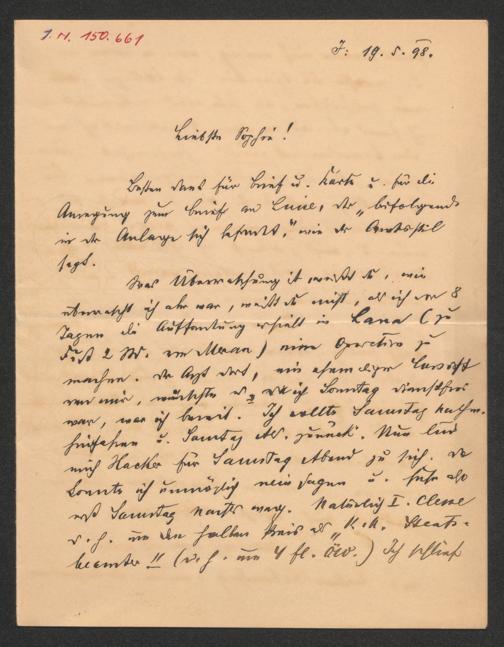 J. N. 150.661
J: 19. 5. 98.
Liebste Sophie!
Besten Dank für Brief u. Karte u. für die
Anregung zum Brief an Luise, der "beifolgend
in der Anlage sich befindet", wie der Amtsstil
sagt.
Was Überraschung ist weißt du, wie
überrascht ich aber war, weißt du nicht, als ich vor 8
Tagen die Aufforderung erhielt in Lana (zu
Fuß 2 St. von Meran) eine Operation zu
machen. Der Arzt dort, ein ehemaliger
von mir, wünschte es, da ich Sonntag dienstfrei
war, war ich bereit. Ich wollte Samstag nachm.
hinfahren u. Sonntag Ab. zurück. Nun lud
mich Hacker für Samstag Abend zu sich. Da
konnte ich unmöglich nein sagen u. fuhr also
erst Samstag nachts weg. Natürlich I. Classe
d. h. um den halben Preis als "K. k. Staats-
beamter"!! (d. h. um 4 fl. öW.) Ich schlief